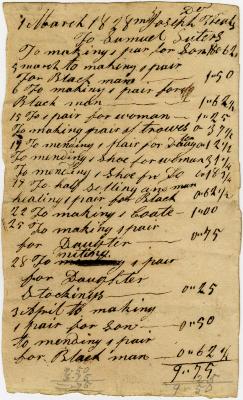 Dr
1 March 1828 mr Joseph
To Samuel Suters
To making 1 pair for Son 0"62½
5 march to making 1 pair
for Black man 1"50
6 To making 1 pair for
Black man 1"62½
15 To 1 pair for woman 1"25
To making pair of 0"37½
To mending 1 pair for 0"12½
To mending 1 Shoe for woman
To mending 1 Shoe for Do 0"18¾
17 To half Solling and
healing 1 pair for Black 0"62½
22 To making 1 Coate 1"00
25 To making 1 pair
for Daughter 0"75
28 To 1 pair
for Daughter
Stockings 0"25
3 April to making
1 pair for Son 0"50
To mending 1 pair
for Black man 0"62½
9"75